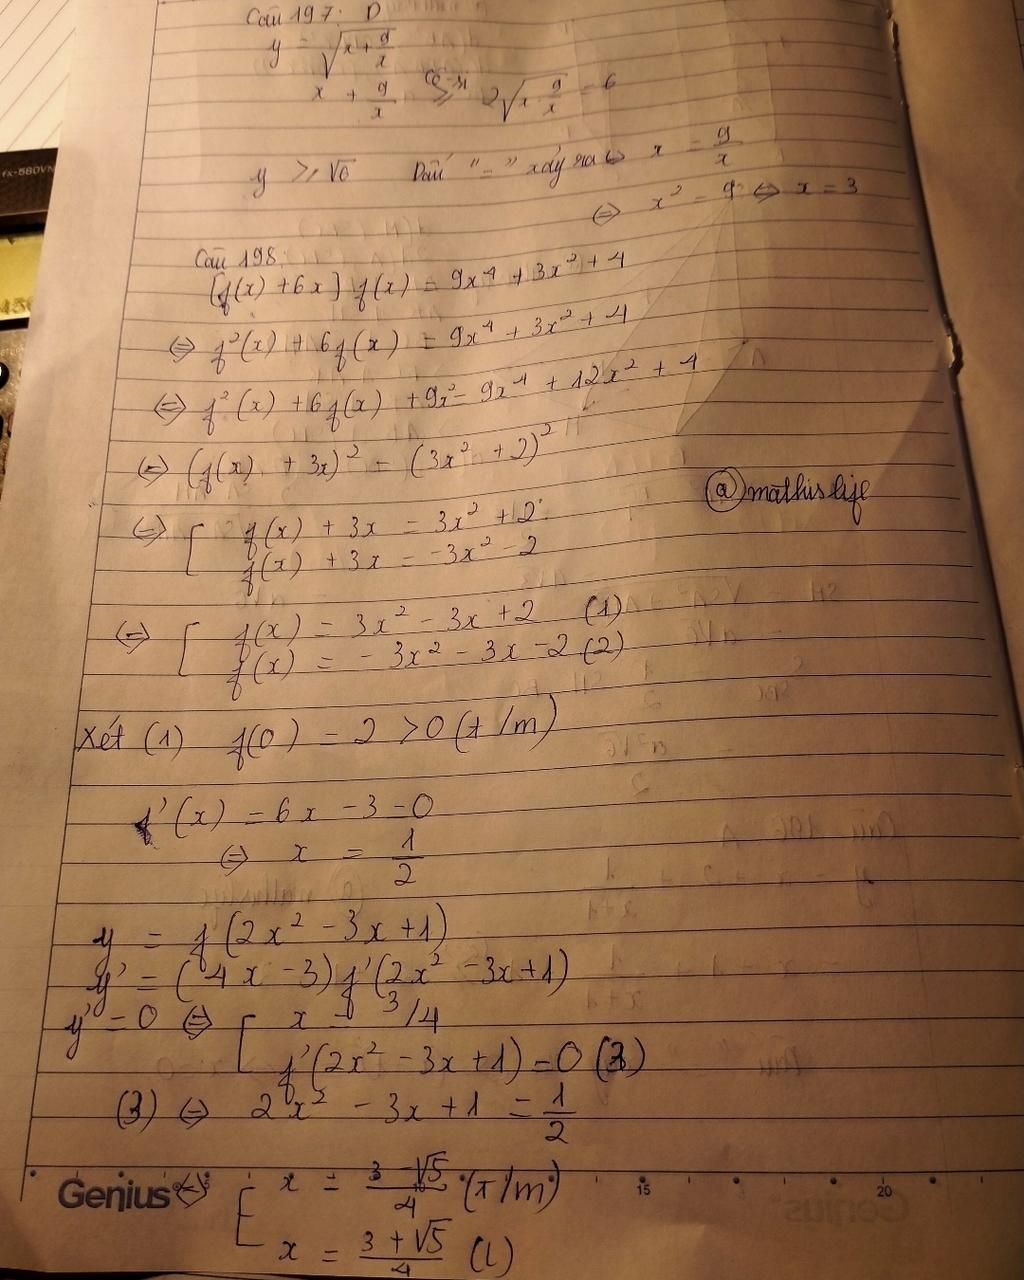 Câu 197: D
y = √(x + 9/x)
x + 9/x ≥ (cô-si) 2√(x · 9/x) = 6
y ≥ √6 Dấu "=" xảy ra ⇔ x = 9/x
⇔ x² = 9 ⇔ x = 3
Câu 198:
[f(x) + 6x] f(x) = 9x⁴ + 3x² + 4
⇔ f²(x) + 6f(x) = 9x⁴ + 3x² + 4
⇔ f²(x) + 6f(x) + 9x² = 9x⁴ + 12x² + 4
⇔ (f(x) + 3x)² = (3x² + 2)²
@mathislife
⇔ [ f(x) + 3x = 3x² + 2
f(x) + 3x = -3x² - 2
⇔ [ f(x) = 3x² - 3x + 2 (1)
f(x) = - 3x² - 3x - 2 (2)
Xét (1) f(0) = 2 > 0 (t/m)
f'(x) = 6x - 3 = 0
⇔ x = 1/2
y = f(2x² - 3x + 1)
y' = (4x - 3) f'(2x² - 3x + 1)
y' = 0 ⇔ [ x = 3/4
f'(2x² - 3x + 1) = 0 (3)
(3) ⇔ 2x² - 3x + 1 = 1/2
⇔ [ x = (3 - √5)/4 (t/m)
x = (3 + √5)/4 (l)
Genius 15 20
fx-580VN